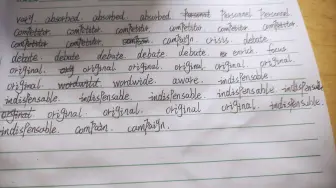 vary absorbed absorbed absorbed Personnel Personnel Personnel
competitor competitor competitor competitor competitor competitor
competitor competitor campaign crisis debate
debate debate debate debate debate enrich focus
original original original original original original
original wordwide wordwide aware indispensable
indispensable indispensable indispensable indispensable indispensable
original original original original original indispensable
indispensable campain campaign